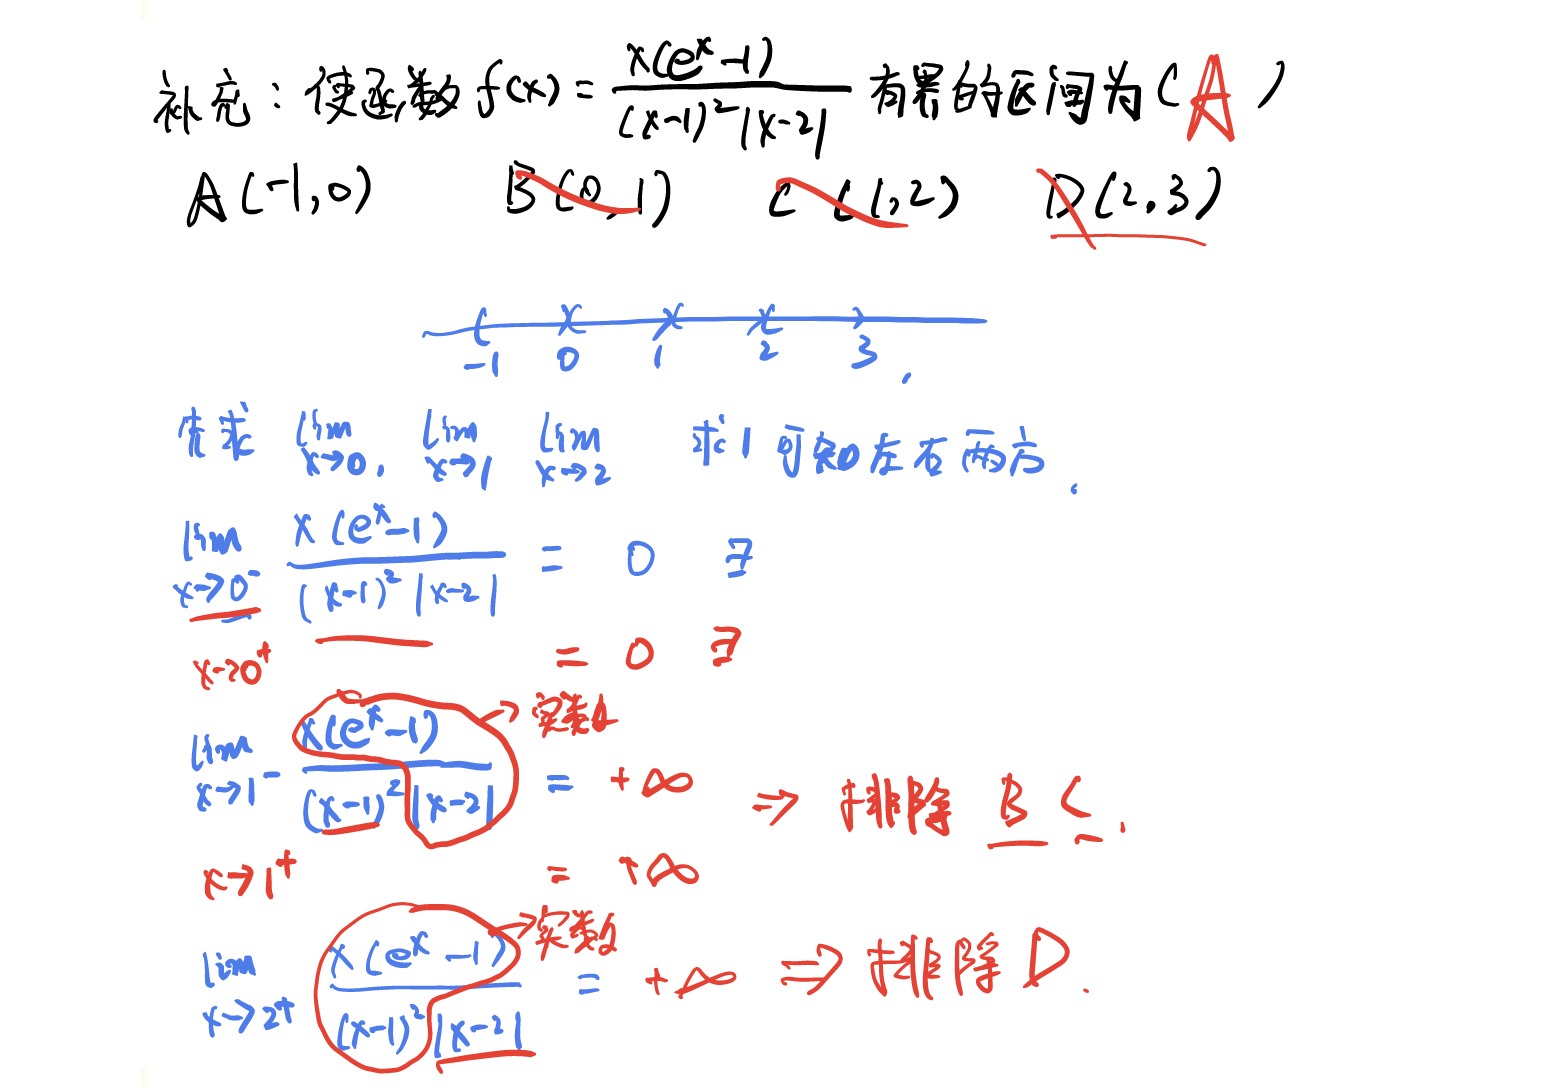 补充：使函数 f(x) = x(e^x-1)/((x-1)^2|x-2|) 有界的区间为(A)
A (-1,0) B (0,1) C (1,2) D (2,3)
-1 0 1 2 3
求 lim x→0, lim x→1 lim x→2 求1可知左右两方.
lim x→0⁻ x(e^x-1)/((x-1)^2|x-2|) = 0 ∃
x→0⁺ = 0 ∃
lim x→1⁻ x(e^x-1)/((x-1)^2|x-2|) = +∞ → 实数 ⇒ 排除 B C.
x→1⁺ = +∞
lim x→2⁺ x(e^x-1)/((x-1)^2|x-2|) = +∞ → 实数 ⇒ 排除 D.